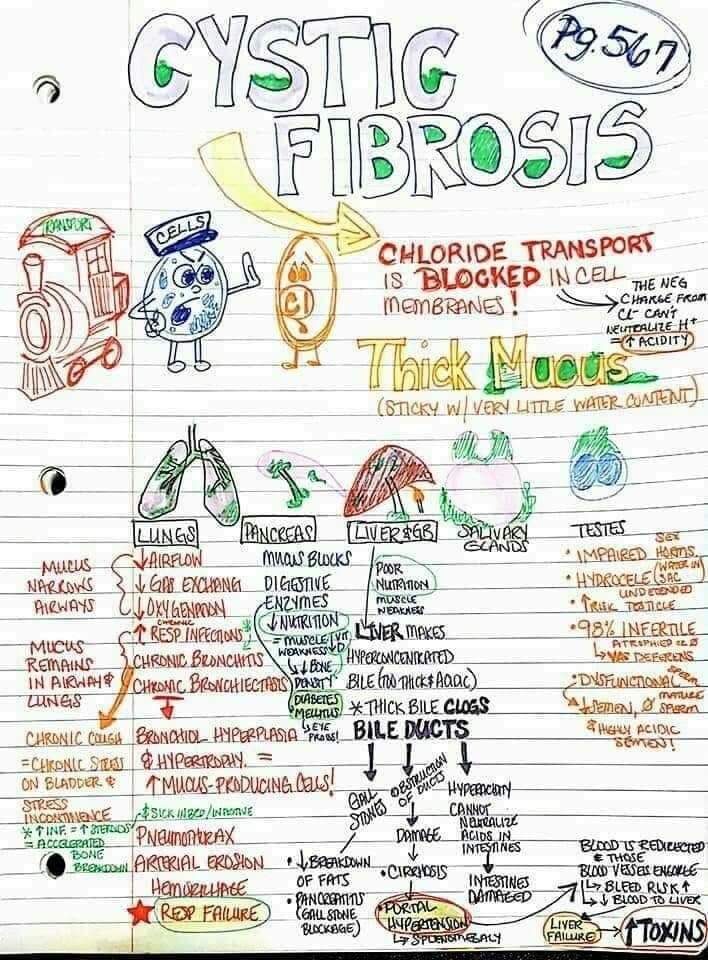 CYSTIC
FIBROSIS
Pg. 567
TRANSPORT
CELLS
Cl
CHLORIDE TRANSPORT
IS BLOCKED IN CELL
MEMBRANES!
THE NEG
CHARGE FROM
CL- CAN'T
NEUTRALIZE H+
= ↑ ACIDITY
Thick Mucus
(STICKY W/ VERY LITTLE WATER CONTENT)
LUNGS
MUCUS
NARROWS
AIRWAYS
↓ AIRFLOW
↓ GAS EXCHANG
↓ OXYGENATION
CHRONIC
↑ RESP INFECTIONS
MUCUS
REMAINS
IN AIRWAY &
LUNGS
CHRONIC BRONCHITIS
CHRONIC BRONCHIECTASIS
CHRONIC COUGH
= CHRONIC STRESS
ON BLADDER &
STRESS
INCONTINENCE
* ↑ INF. = ↑ STEROIDS
= ACCELERATED
BONE
BREAKDOWN
BRONCHIOL HYPERPLASIA
& HYPERTROPHY =
↑ MUCUS-PRODUCING CELLS!
& SICK IN BED / INACTIVE
PNEUMOTHRAX
ARTERIAL EROSION
HEMORRHAGE
★ RESP FAILURE
PANCREAS
MUCUS BLOCKS
DIGESTIVE
ENZYMES
↓ NUTRITION
= MUSCLE
WEAKNESS
↓ VIT
D
↓ BONE
DENSITY
DIABETES
MELLITUS
↳ EYE
PROBS!
LIVER & GB
POOR
NUTRITION
MUSCLE
WEAKNESS
LIVER MAKES
HYPERCONCENTRATED
BILE (TOO THICK & ACIDIC)
* THICK BILE CLOGS
BILE DUCTS
GALL
STONES
• ↓ BREAKDOWN
OF FATS
• PANCREATITIS
(GALLSTONE
BLOCKAGE)
OBSTRUCTION
OF DUCTS
DAMAGE
• CIRRHOSIS
• PORTAL
HYPERTENSION
↳ SPLENOMEGALY
HYPERACIDITY
CANNOT
NEUTRALIZE
ACIDS IN
INTESTINES
INTESTINES
DAMAGED
BLOOD IS REDIRECTED
& THOSE
BLOOD VESSELS ENGORGE
↳ BLEED RISK ↑
↳ ↓ BLOOD TO LIVER
LIVER
FAILURE
↑ TOXINS
SALIVARY
GLANDS
TESTES
SEX
• IMPAIRED HORMS.
• HYDROCELE (WATER IN
SAC
UNDESCENDED
• ↑ RISK TESTICLE
• 98% INFERTILE
ATROPHIED OR Ø
↳ VAS DEFERENS
• DYSFUNCTIONAL
MATURE
↓ SEMEN, Ø SPERM
& HIGHLY ACIDIC
SEMEN!